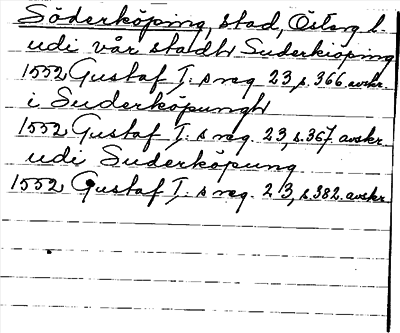 Söderköping, stad, Österg l.
udi vår stadh Suderkiöping
1552 Gustaf I:s reg. 23, s. 366. avskr.
i Suderköpungh
1552 Gustaf I:s reg. 23, s. 367. avskr.
udi Suderköpung
1552 Gustaf I:s reg. 23, s. 382. avskr.